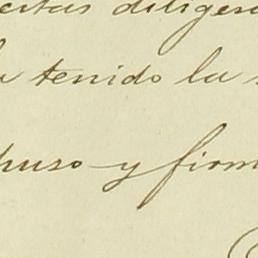 ertas diligen
a tenido la
puso y firm